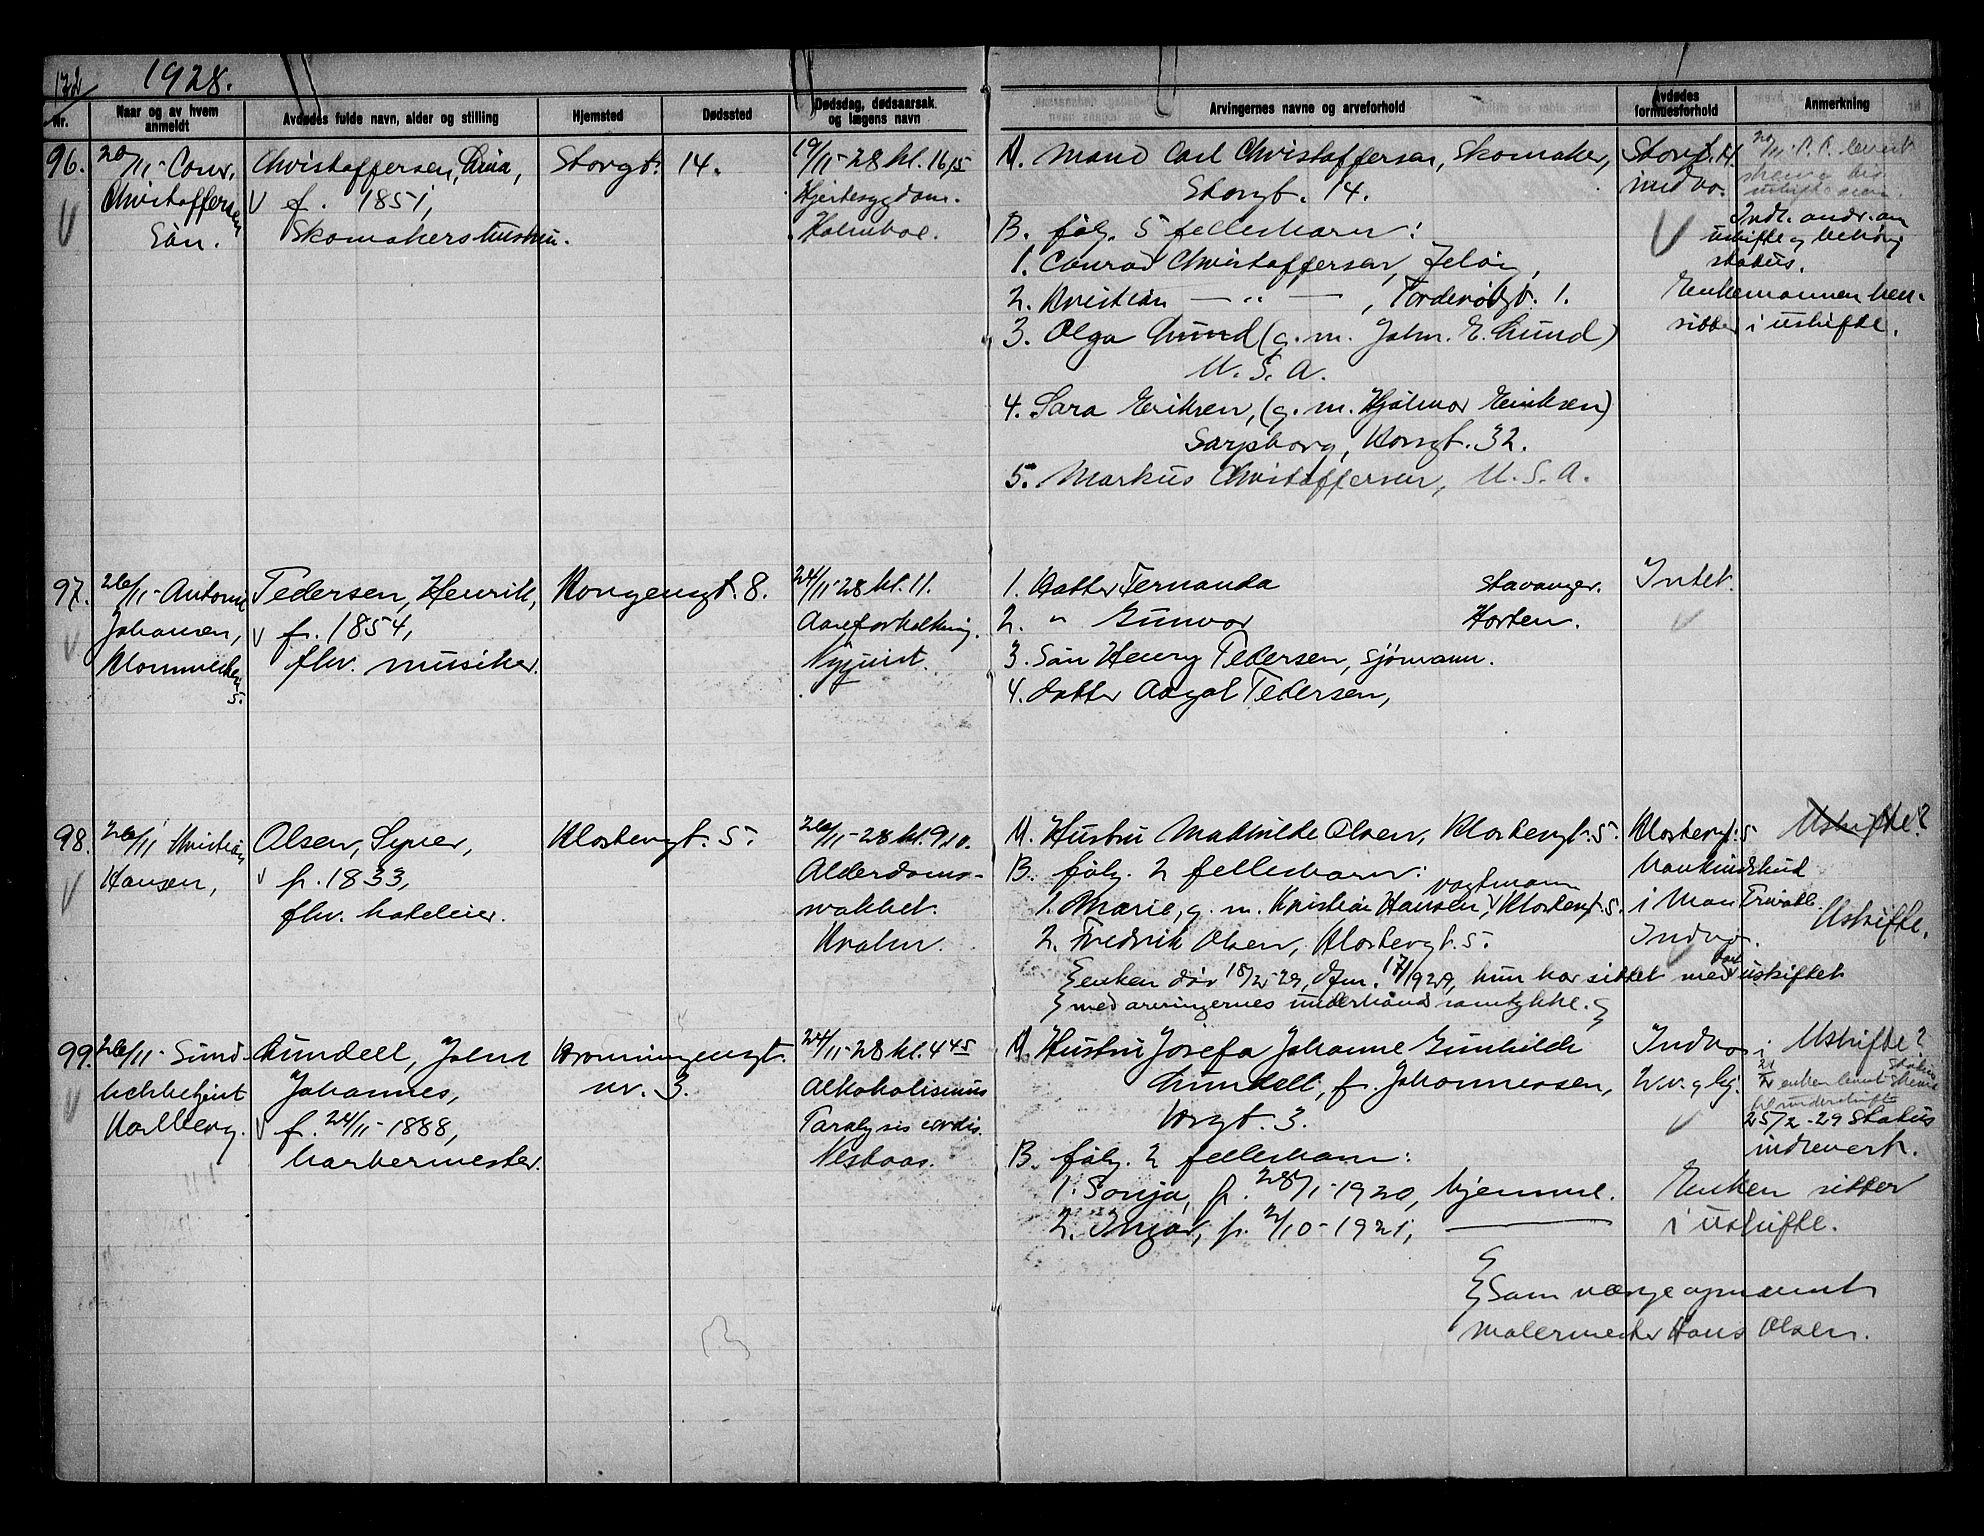 172 1928.
Nr.
Naar og av hvem anmeldt
Avdødes fulde navn, alder og stilling
Hjemsted
Dødssted
Dødsdag, dødsaarsak og lægens navn
Arvingernes navne og arveforhold
Avdødes formuesforhold
Anmerkning
96.
20/11- Conr.
Christoffersen
Søn.
Christoffersen, Lina,
f. 1851,
Skomakershustru.
Storgt. 14.
19/11-28 kl. 16,15
Hjertesygdom.
Holmboe.
A. Mand Carl Christoffersen, Skomaker,
Storgt. 14.
B. følg. 5 fellesbarn:
1. Conrad Christoffersen, Jeløy,
2. Kristian — " — , 1.
3. Olga Lund (g. m. John. E. Lund)
U. S. A.
4. Sara Eriksen, (g. m. Hjalmar Eriksen)
Sarpsborg, Korsgt. 32.
5. Markus Christoffersen, U. S. A.
Storgt. 14.
indbo.
20/11
uskifte og
status.
Enkemannen hen-
sitter i uskifte.
97.
26/11- Anton
Johansen,
5.
Pedersen, Henrik,
f. 1854,
fhv. musiker.
Kongensgt. 8.
24/11-28 kl. 11.
Aareforkalkning.
Nyquist.
1. Datter Fernanda Stavanger.
2. " Gunvor Horten.
3. Søn Henry Pedersen, sjømann.
4. datter Aagot Pedersen,
Intet.
98.
26/11 Kristian
Hansen,
Olsen, Syver,
f. 1833,
fhv. hoteleier.
Klostergt. 5.
26/11-28 kl. 9,10.
Alderdoms-
svakhet.
Kvalm.
A. Hustru Mathilde Olsen, Klostergt. 5.
B. følg. 2 fellesbarn:
vagtmann
1. Marie, g. m. Kristian Hansen, Klostergt. 5.
2. Fredrik Olsen, Klostergt. 5.
enken dør 18/2-29, dfm. 17/1929, hun har sittet med uskiftet bo
med arvingernes underhånds samtykke.
Klostergt. 5
Bankindskud
i Mos Privatb.
Indbo.
Uskifte?
Uskifte.
99.
26/11- Sund-
Karlberg.
Lundell, John
Johannes,
f. 24/11-1888,
barbermester.
Dronningensgt.
nr. 3.
24/11-28 kl. 4 45
Alkoholismus
Paralysis cordis.
Nesbaas.
A. Hustru Josefa Johanne Gunhilde
Lundell, f. Johannessen,
3.
B. følg. 2 fellesbarn:
1. Sonja, f. 28/1-1920, hjemme.
2. Ingar, f. 2/10-1921, ———
Indbo i
2 v. og kj.
Uskifte?
25/2-29 Status
indlevert.
Enken sitter
i uskifte.
Som verge opnævnt
malermester Hans Olsen.